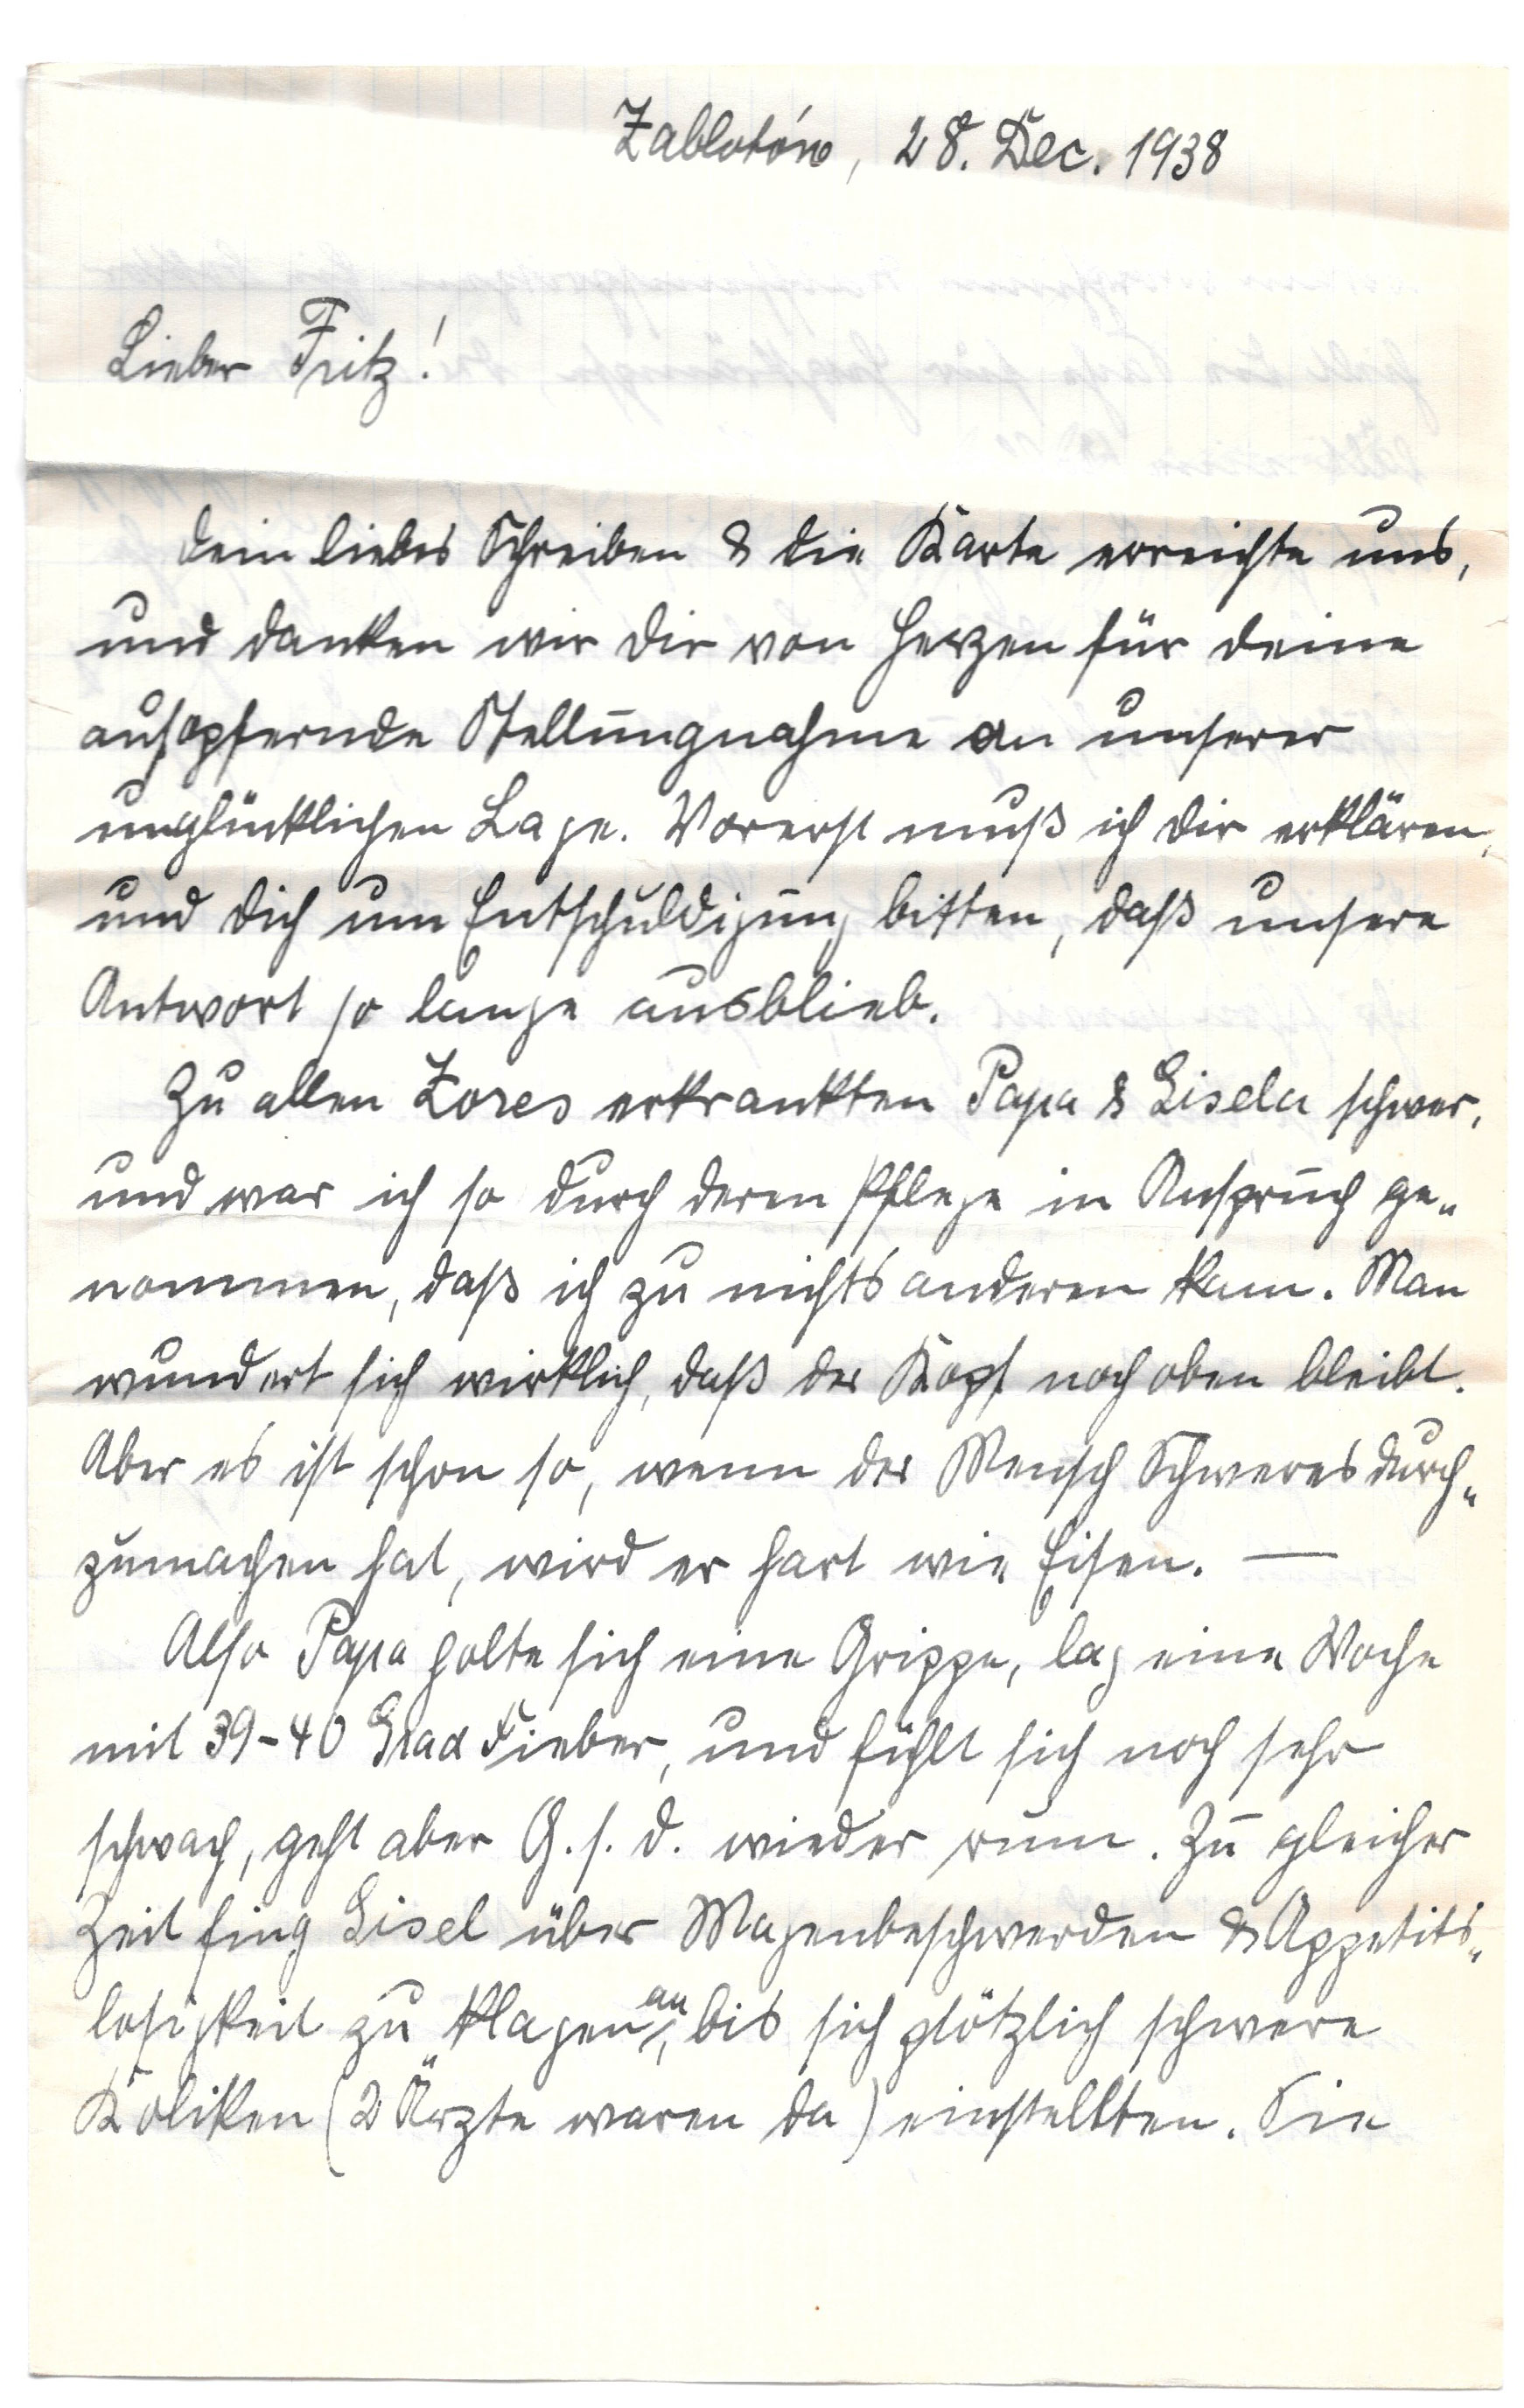 Zablotów, 28. Dec. 1938
Lieber Fritz!
Dein liebes Schreiben & die Karte erreichte uns,
und danken wir Dir von Herzen für Deine
aufopfernde Stellungnahme an unserer
unglücklichen Lage. Vorerst muß ich Dir erklären,
und Dich um Entschuldigung bitten, daß unsere
Antwort so lange ausblieb.
Zu allen Zores erkrankten Papa & Gisela schwer,
und war ich so durch deren Pflege in Anspruch ge„
nommen, daß ich zu nichts anderen kam. Man
wundert sich wirklich, daß der Kopf noch oben bleibt.
Aber es ist schon so, wenn der Mensch Schweres durch„
zumachen hat, wird er hart wie Eisen. —
Also Papa holte sich eine Grippe, lag eine Woche
mit 39-40 Grad Fieber, und fühlt sich noch sehr
schwach, geht aber G. s. d. wieder rum. Zu gleicher
Zeit fing Gisel über Magenbeschwerden & Appetits„
losigkeit zu klagen an, bis sich plötzlich schwere
Koliken (2 Ärzte waren da) einstellten. Sie